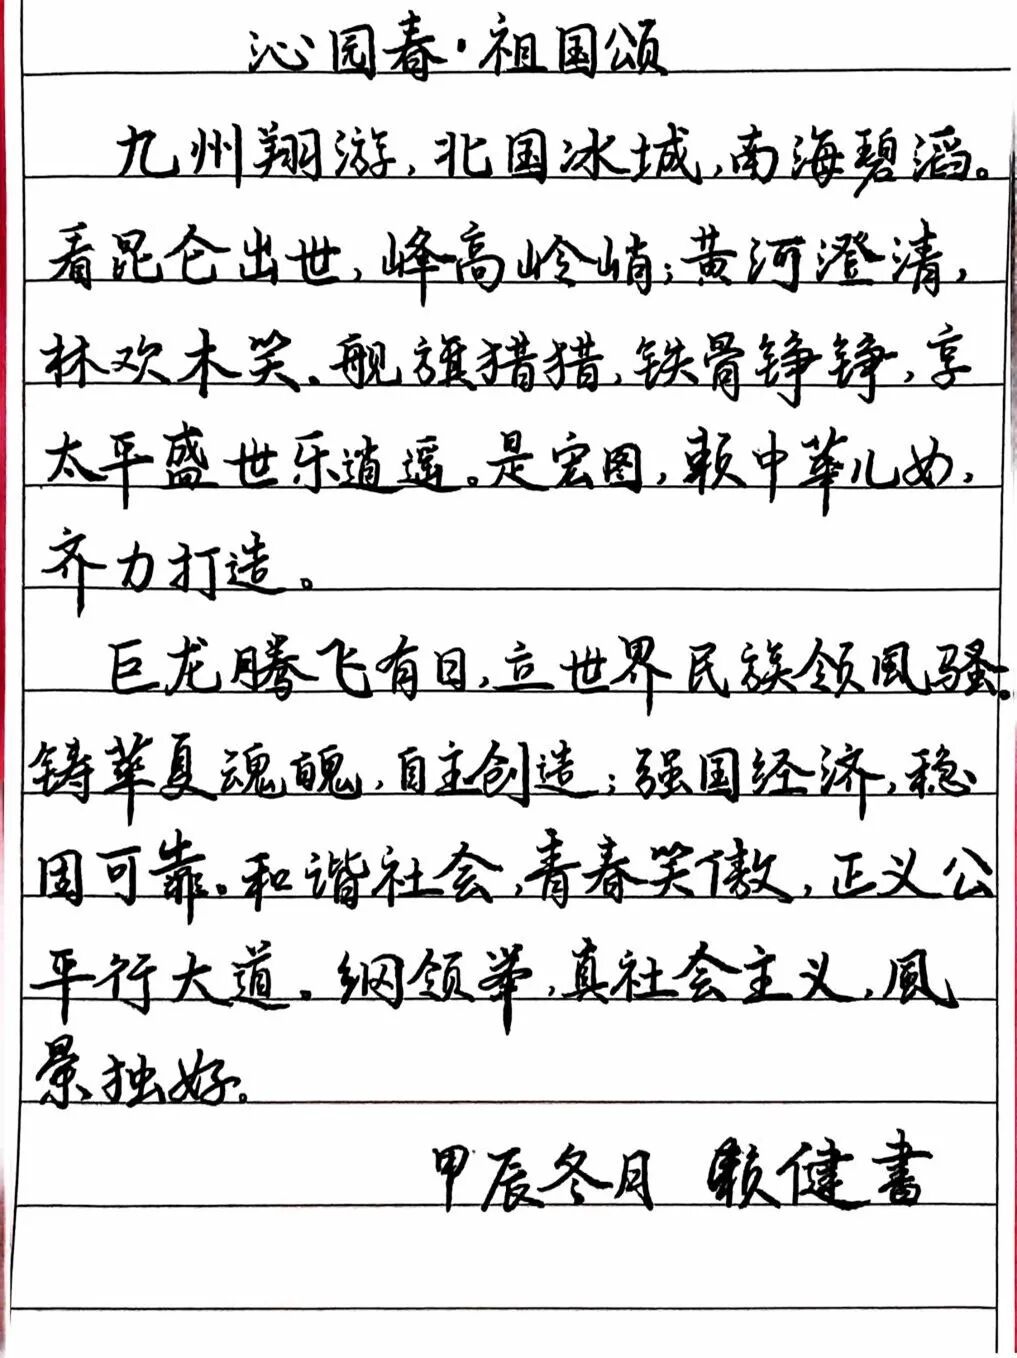 沁园春·祖国颂
九州翔游，北国冰城，南海碧滔。
看昆仑出世，峰高岭峭；黄河澄清，
林欢木笑。舰旗猎猎，铁骨铮铮，享
太平盛世乐逍遥。是宏图，赖中華儿女，
齐力打造。
巨龙腾飞有日，立世界民族领風骚。
铸華夏魂魄，自主创造；强国经济，稳
固可靠。和谐社会，青春笑傲，正义公
平行大道。纲领举，真社会主义，風
景独好。
甲辰冬月 赖健書